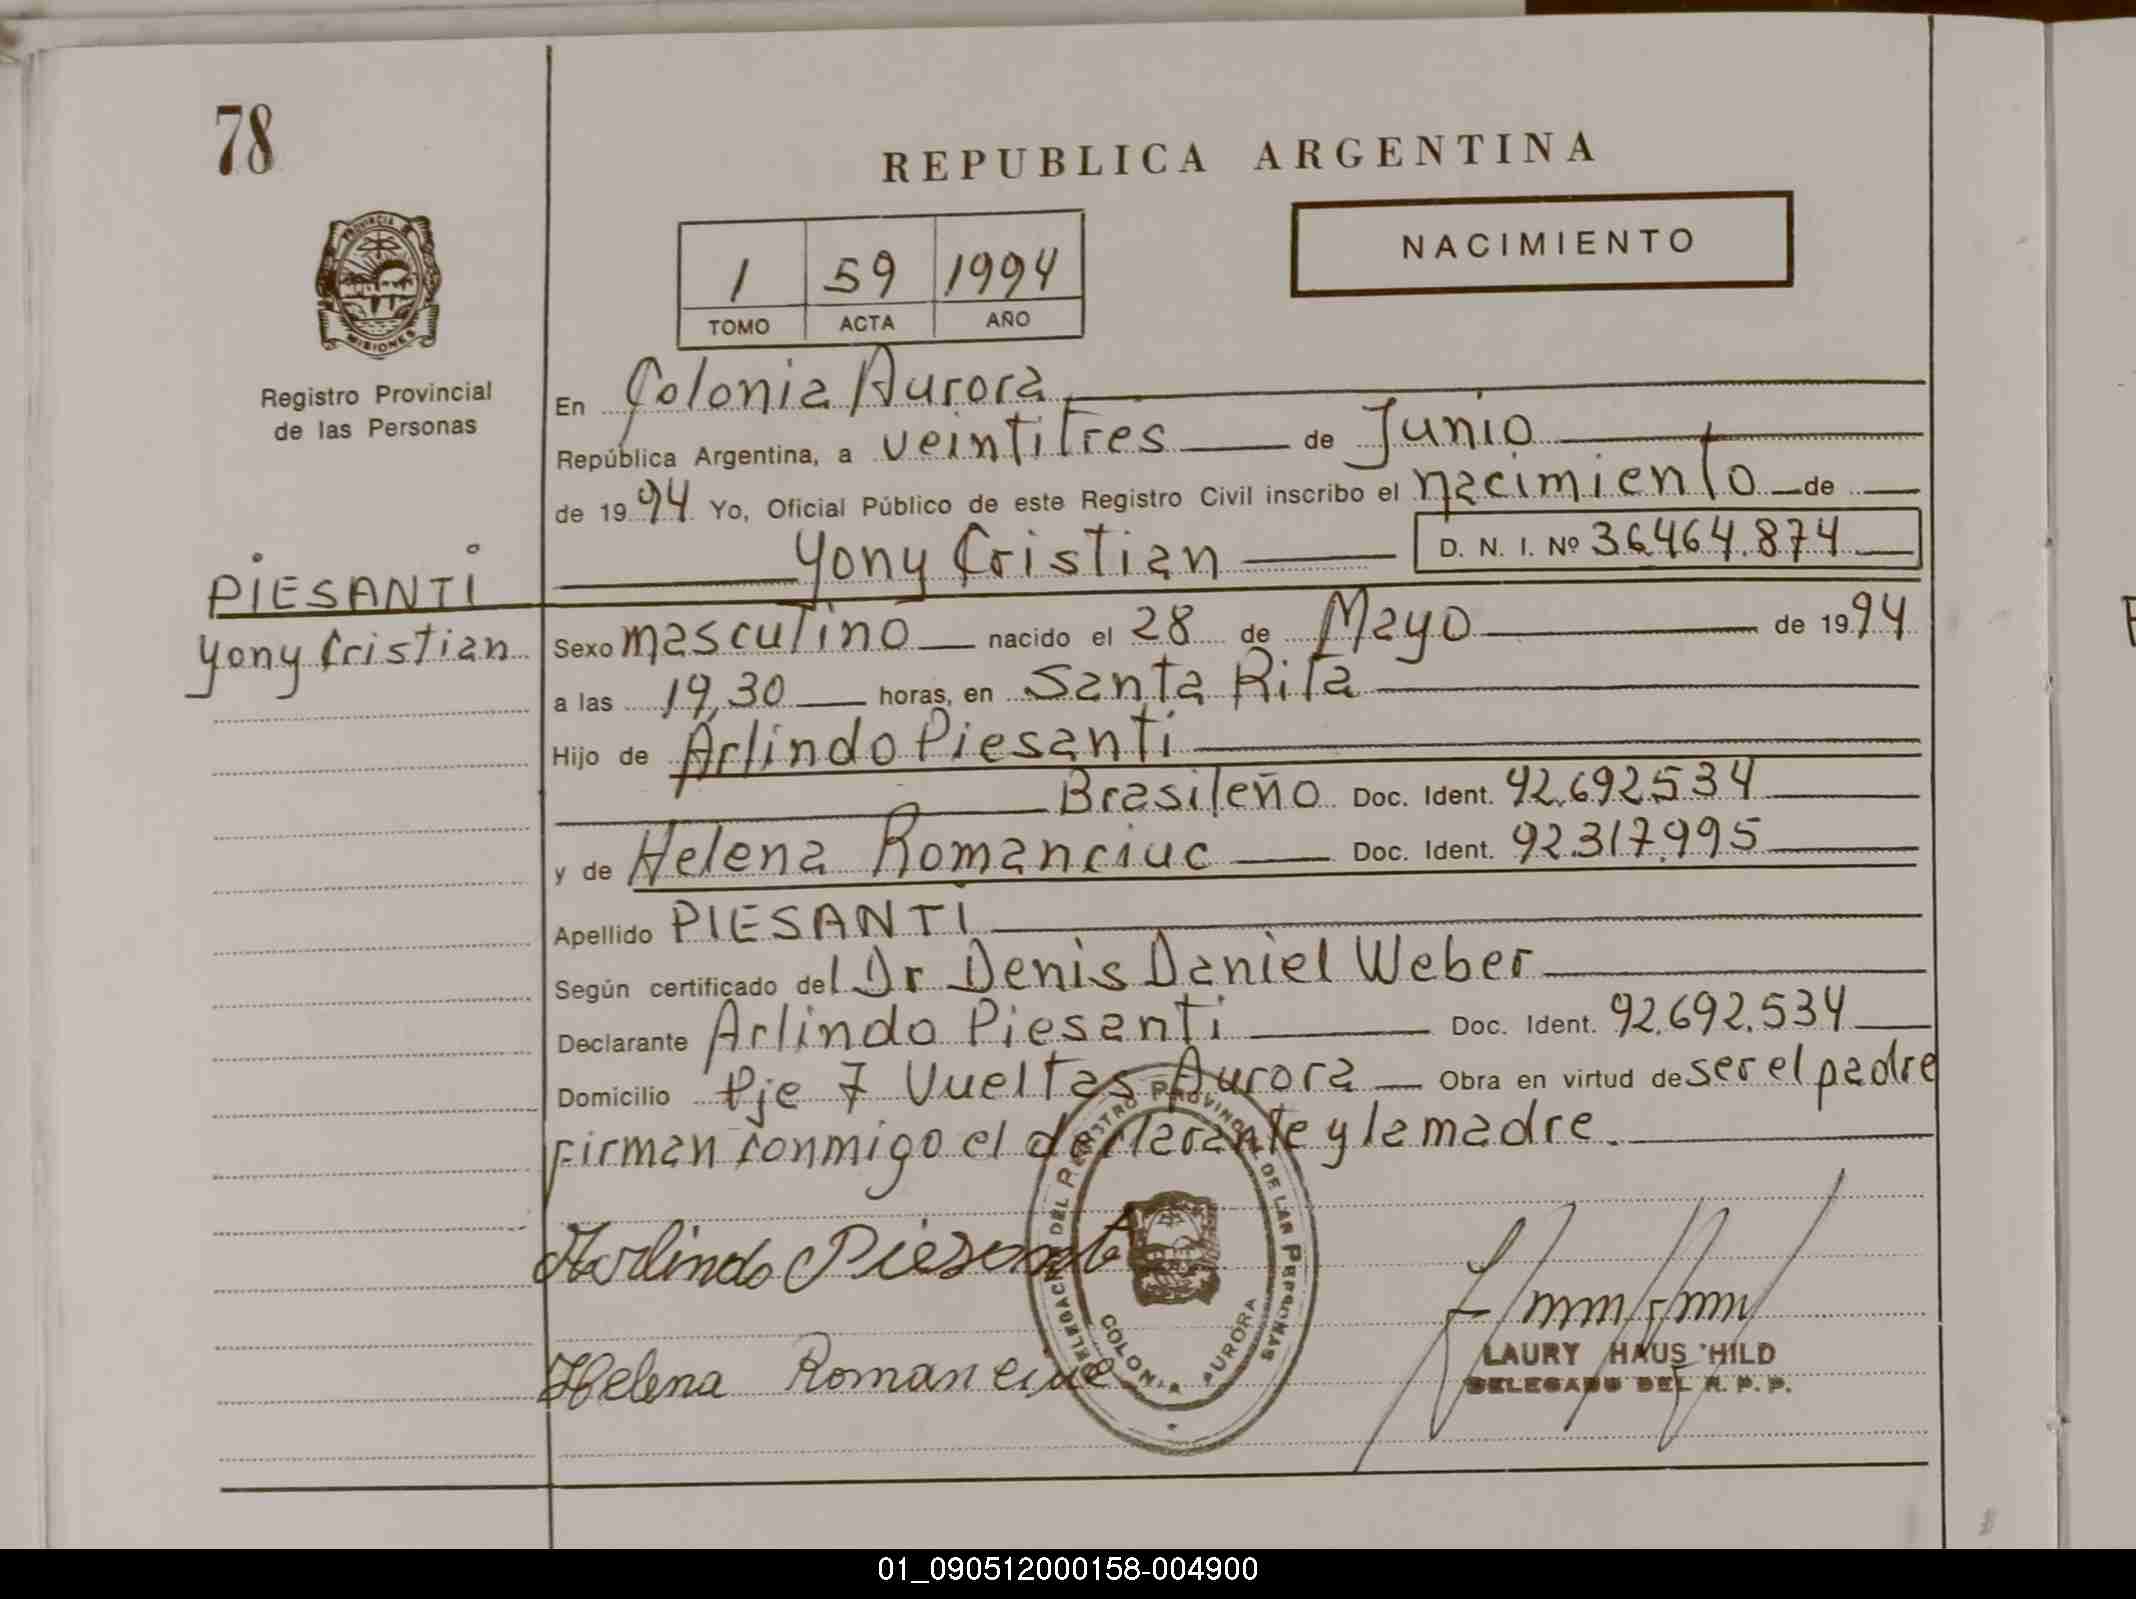 78
REPUBLICA ARGENTINA
NACIMIENTO
1 59 1994
TOMO ACTA AÑO
PROVINCIA DE MISIONES
Registro Provincial
de las Personas
En Colonia Aurora
República Argentina, a veintitres de Junio
de 1994 Yo, Oficial Público de este Registro Civil inscribo el nacimiento de
Yony Cristian D. N. I. Nº 36464.874
PIESANTI
Yony Cristian
Sexo masculino nacido el 28 de Mayo de 1994
a las 19,30 horas, en Santa Rita
Hijo de Arlindo Piesanti
Brasileño Doc. Ident. 92.692534
y de Helena Romanciuc Doc. Ident. 92.317.995
Apellido PIESANTI
Según certificado del Dr Denis Daniel Weber
Declarante Arlindo Piesanti Doc. Ident. 92.692.534
Domicilio Pje 7 Vueltas Aurora Obra en virtud de ser el padre
Firman conmigo el declarante y la madre.
DELEGACION DEL REGISTRO PROVINCIAL DE LAS PERSONAS
COLONIA AURORA
Arlindo Piesanti
Helena Romanciuc
LAURY HAUS HILD
DELEGADO DEL R. P. P.
01_090512000158-004900